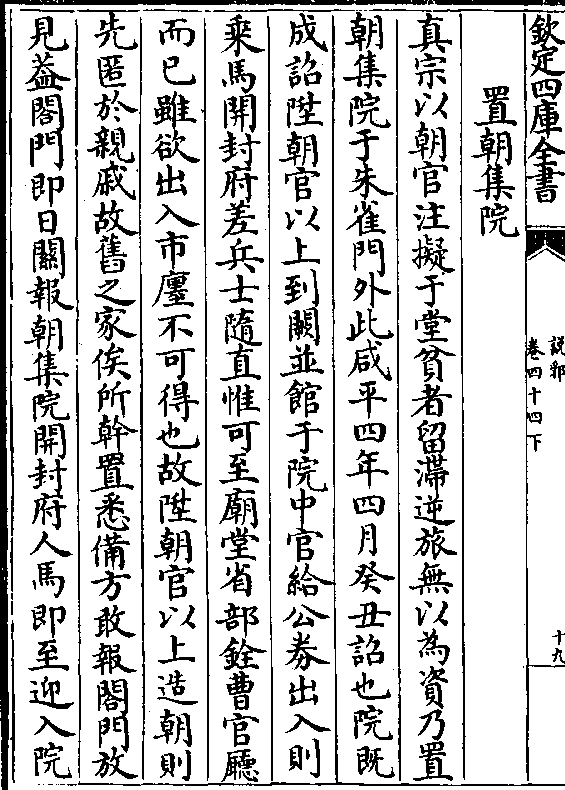 欽定四庫全書
說郛
卷四十四下
十九
置朝集院
真宗以朝官注擬于堂貧者留滯逆旅無以為資乃置
朝集院于朱雀門外此咸平四年四月癸丑詔也院既
成詔陞朝官以上到闕並館于院中官給公券出入則
乗馬開封府差兵士隨直惟可至廟堂省部銓曹官廳
而已雖欲出入市廛不可得也故陞朝官以上造朝則
先匿於親戚故舊之家俟所幹置悉備方敢報閤門放
見葢閤門即日關報朝集院開封府人馬即至迎入院